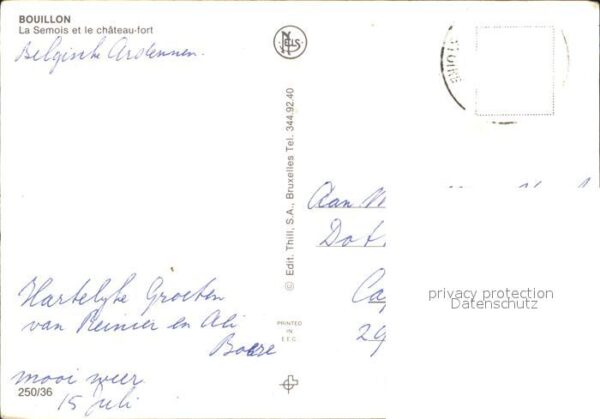 BOUILLON
La Semois et le château-fort
Belgische Ardennen.
NELS
© Edit. Thill, S.A., Bruxelles Tel. 344.92.40
Aan
Hartelyke Groeten
van Reinier en Ali
Boere
mooi weer
15 Juli
PRINTED
IN
E.E.C.
250/36
privacy protection
Datenschutz